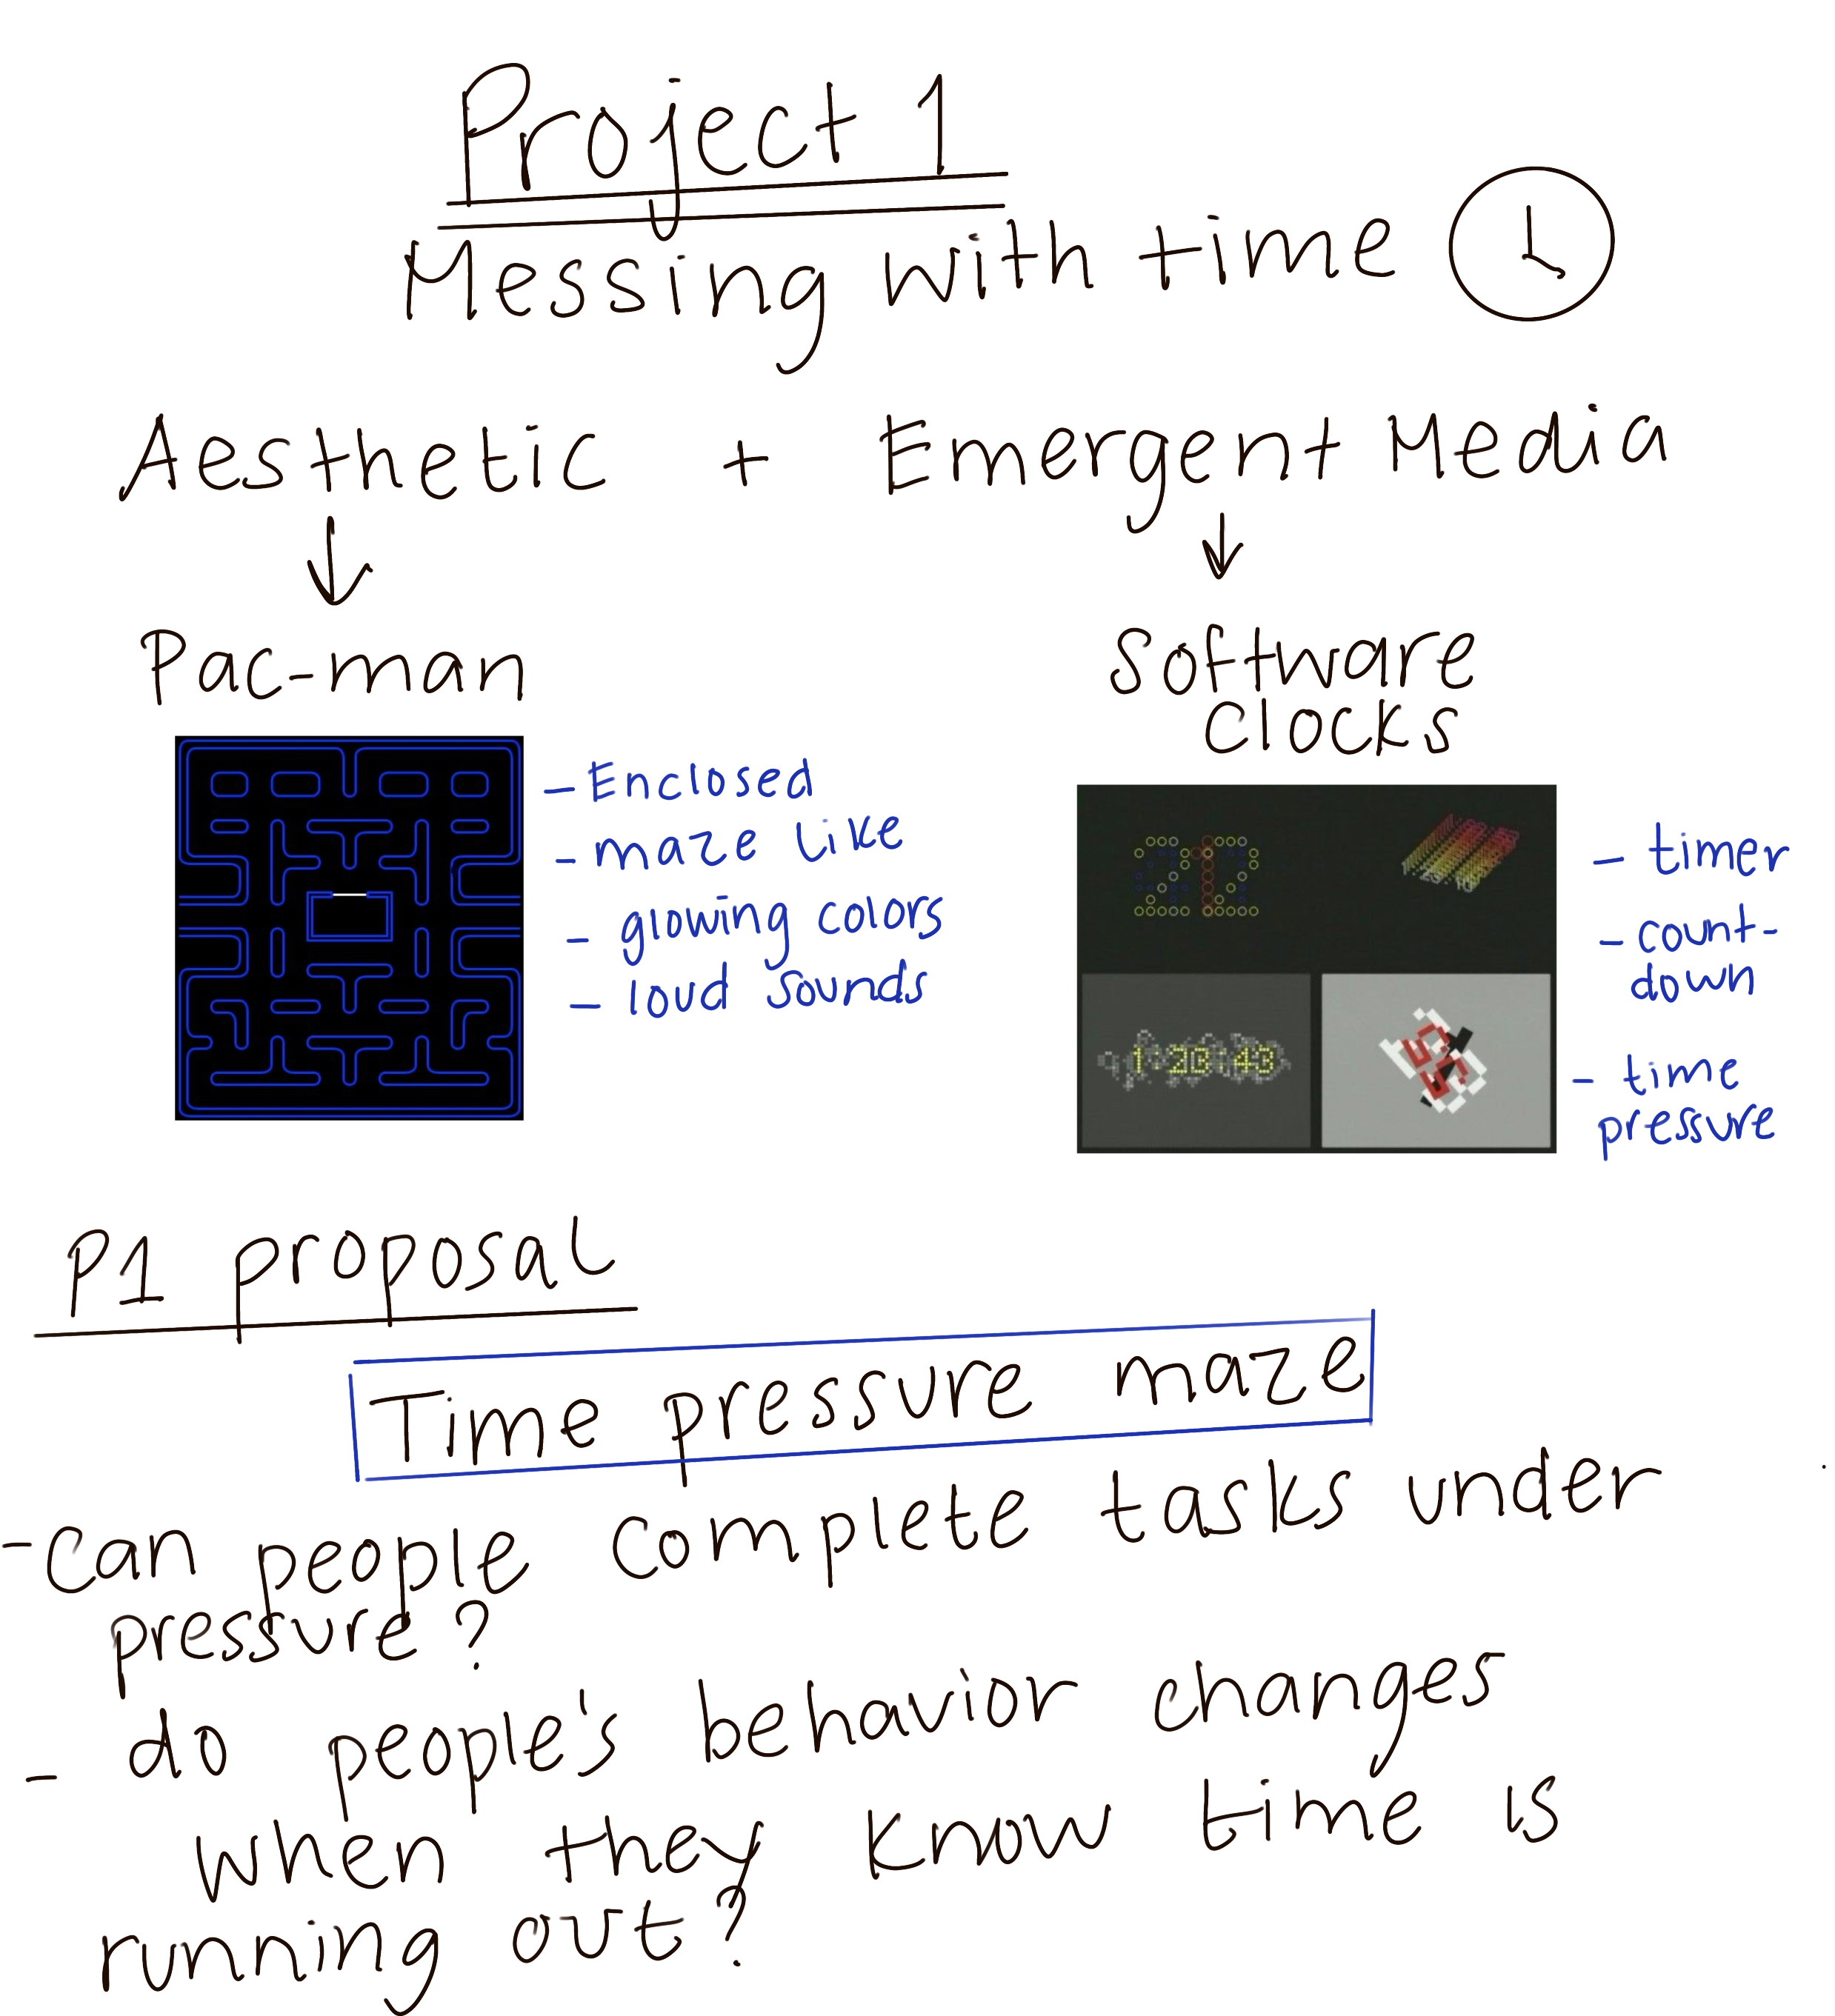 Project 1
Messing with time
Aesthetic + Emergent Media
Pac-man
- Enclosed
- maze like
- glowing colors
- loud sounds
Software
Clocks
1:20:43
- timer
- count-
down
- time
pressure
P1 proposal
Time pressure maze
- Can people complete tasks under
pressure?
- do people's behavior changes
when they know time is
running out?